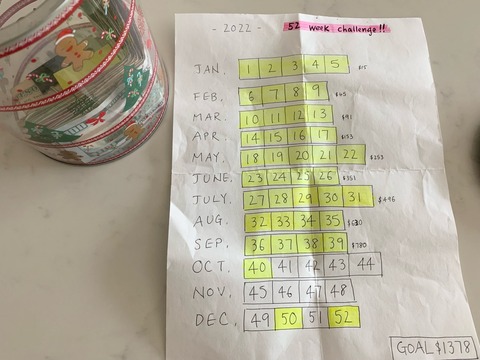 - 2022 -
52 week challenge!!
JAN. 1 2 3 4 5 $15
FEB. 6 7 8 9 $45
MAR. 10 11 12 13 $91
APR. 14 15 16 17 $153
MAY. 18 19 20 21 22 $253
JUNE. 23 24 25 26 $351
JULY. 27 28 29 30 31 $496
AUG. 32 33 34 35 $630
SEP. 36 37 38 39 $780
OCT. 40 41 42 43 44
NOV. 45 46 47 48
DEC. 49 50 51 52
GOAL $1378